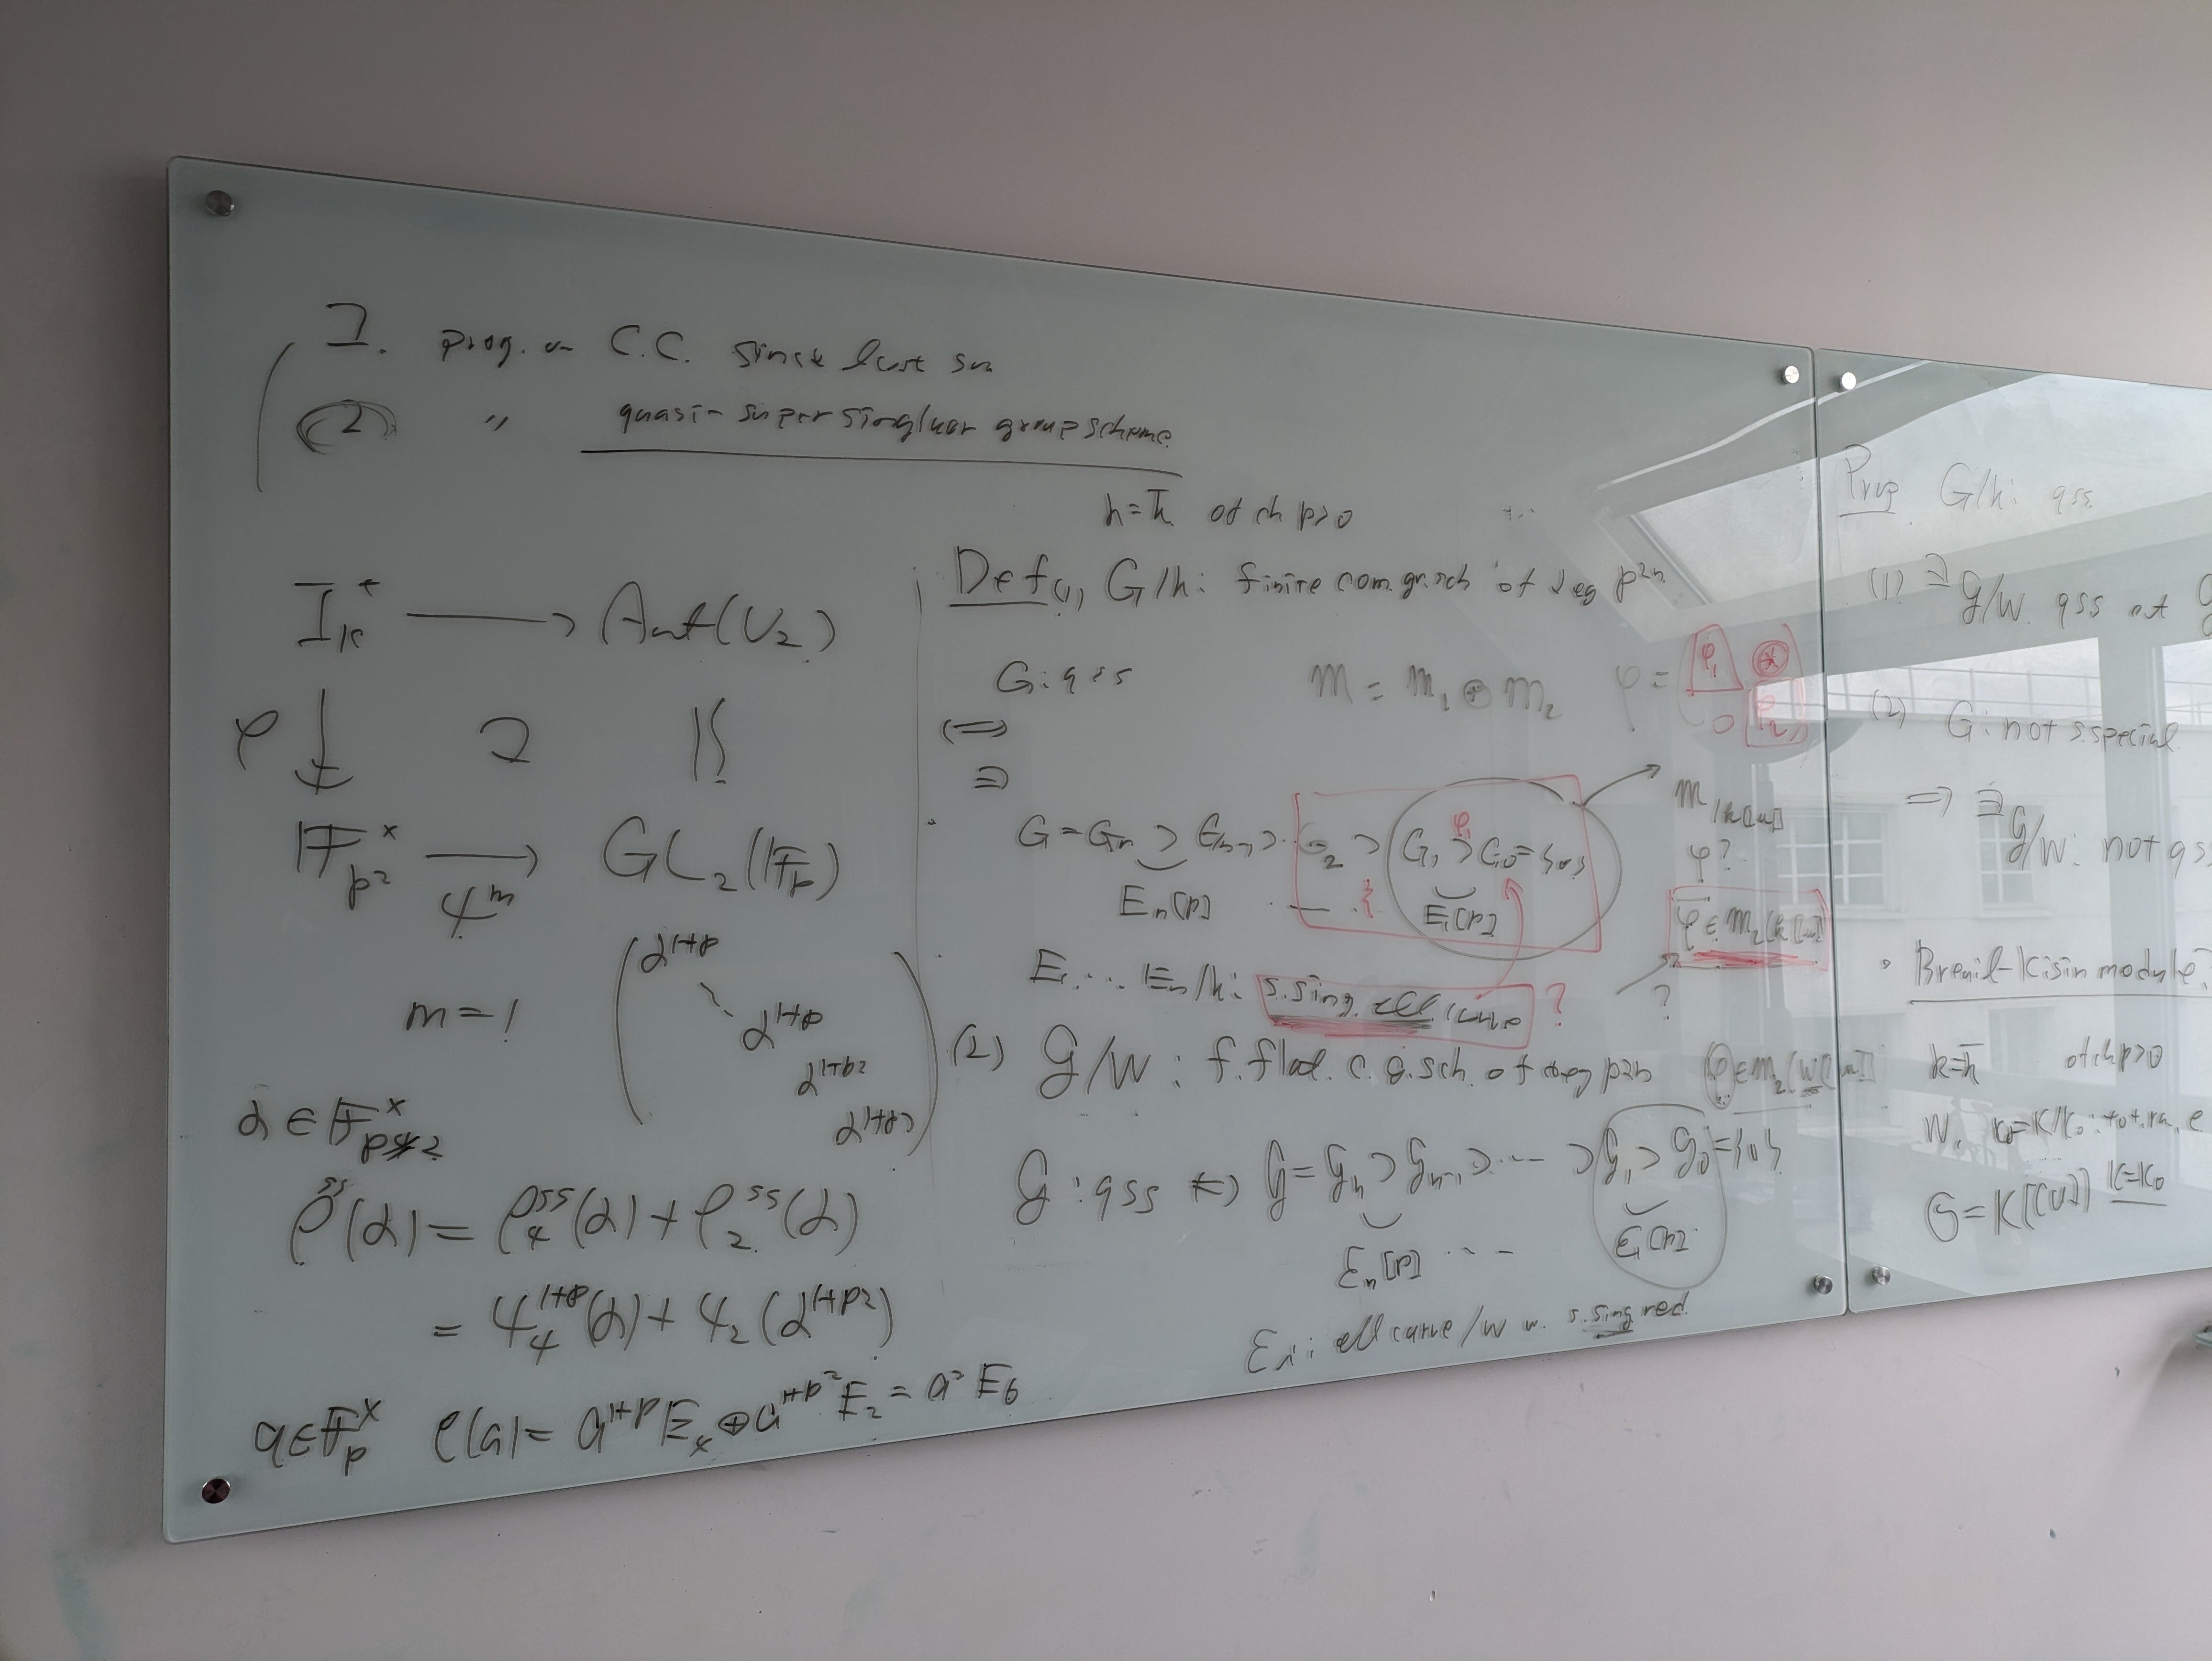 1. prog. on C.C. since last sm
(2) 〃 quasi-supersingluar group scheme
I_K^t ⟶ Aut(V_2)
φ ↓ ↻ ≀|
F_{p^2}^× ⟶ GL_2(F_p)
ψ^m
m=1
α^{1+p}
α^{1+p}
α^{1+p2}
α^{1+p2}
α ∈ F_{p2}^×
ρ^{ss}(α) = ρ_4^{ss}(α) + ρ_2^{ss}(α)
= ψ_4^{1+p}(α) + ψ_2(α^{1+p2})
a∈F_p^× ρ(a) = a^{1+p}E_4 ⊕ a^{1+p^2}E_2 = a^2 E_6
k=k̄ of ch p>0
Def (1) G/k: finite com. gr. sch of deg p^{2n}
G: qss
m = m_1 ⊕ m_2 φ = ( φ_1 * 0 φ_2 )
⟺
∃
G=G_n ⊃ G_{n-1} ⊃ ·· G_2 ⊃ G_1 ⊃ G_0 = {0}
E_n[p] ··· E_1[p]
m/k[[u]]
φ?
φ̄ ∈ M_2(k[[u]])
E_1 ··· E_n/k: s.sing. ell curve ? ?
(2) G/W: f. flat. c. g. sch. of deg p2n φ ∈ M_2(W[[u]])
G: qss ⟺ G=G_n ⊃ G_{n-1} ⊃ ··· ⊃ G_1 ⊃ G_0={0}
E_n[p] ··· E_1[p]
E_i: ell curve /W w. s.sing red.
Prop G/k: qss
(1) ∃ G/W. qss
(2) G: not s.special
⟹ ∃ G/W: not qss
• Breuil-Kisin module?
k=k̄ of ch p>0
W, K/K_0: tot. ra, e
G=K[[u]] K=K_0